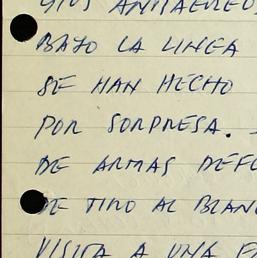 ANTIAEREOS
BAJO LA LINEA
SE HAN HECHO
POR SORPRESA. -
DE ARMAS DEFE
DE TIRO AL BLANC
VISITA A UNA